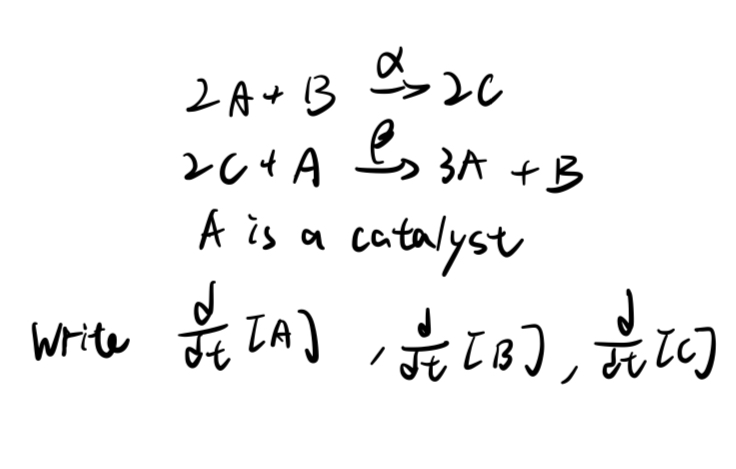 2A + B α→ 2C
2C + A β→ 3A + B
A is a catalyst
Write d/dt [A] , d/dt [B] , d/dt [C]